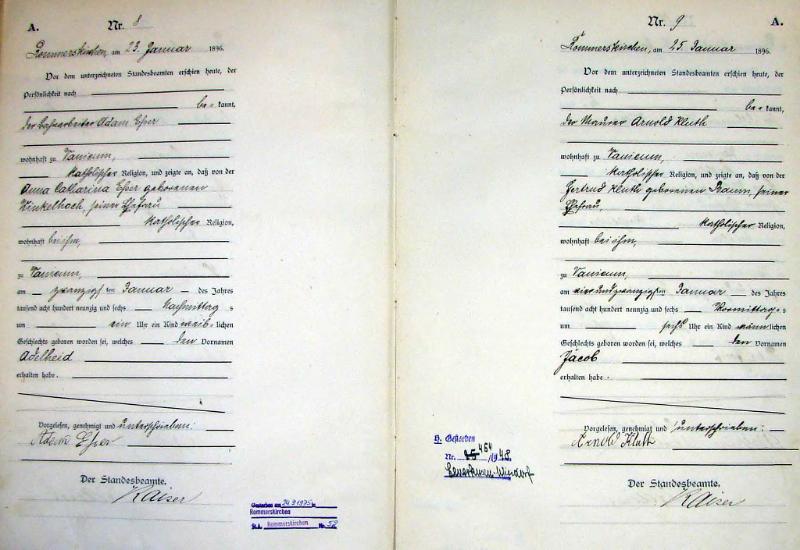 A.
Nr. 8
Rommerskirchen, am 23. Januar 1896.
Vor dem unterzeichneten Standesbeamten erschien heute, der
Persönlichkeit nach
be= kannt,
der Adam Esser
wohnhaft zu Vanicum,
katholischer Religion, und zeigte an, daß von der
Anna Catharina Esser geborenen
Winkelhoch, seiner Ehefrau
katholischer Religion,
wohnhaft bei ihm,
zu Vanicum,
am zwanzigsten Januar des Jahres
tausend acht hundert neunzig und sechs Nachmittag s
um ein Uhr ein Kind weib= lichen
Geschlechts geboren worden sei, welches den Vornamen
Adelheid
erhalten habe.
Vorgelesen, genehmigt und unterschrieben:
Adam Esser
Der Standesbeamte.
Kaiser
24.9.1975
Rommerskirchen
St.A. Rommerskirchen Nr. 52
Nr. 9
A.
Rommerskirchen, am 25. Januar 1896.
Vor dem unterzeichneten Standesbeamten erschien heute, der
Persönlichkeit nach
be= kannt,
der Maurer Arnold Kluth
wohnhaft zu Vanicum,
katholischer Religion, und zeigte an, daß von der
Gertrud Kluth geborenen Baum, seiner
Ehefrau,
katholischer Religion,
wohnhaft bei ihm,
zu Vanicum,
am vierundzwanzigsten Januar des Jahres
tausend acht hundert neunzig und sechs Vormittag s
um sechs Uhr ein Kind männlichen
Geschlechts geboren worden sei, welches den Vornamen
Jacob
erhalten habe.
Vorgelesen, genehmigt und unterschrieben:
Arnold Kluth
Der Standesbeamte.
Kaiser
H. Gestorben
Nr. 464 /1948